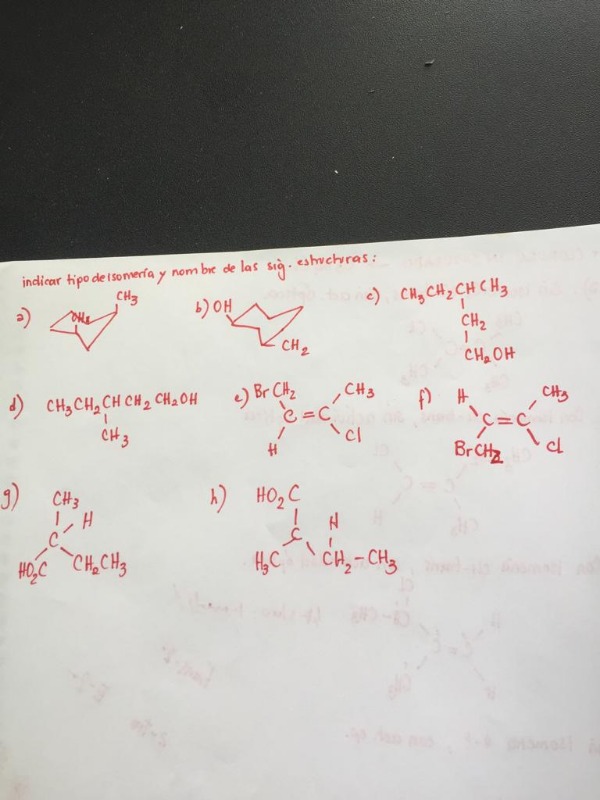 indicar tipo de isomería y nombre de las sig. estructuras:
a) CH3
b) OH
CH2
c) CH3CH2CHCH3
CH2
CH2OH
d) CH3CH2CHCH2CH2OH
CH3
e) BrCH2 CH3
C=C
H Cl
f) H CH3
C=C
BrCH2 Cl
g) CH3
H
C
HO2C CH2CH3
h) HO2C
H
C
H3C CH2-CH3